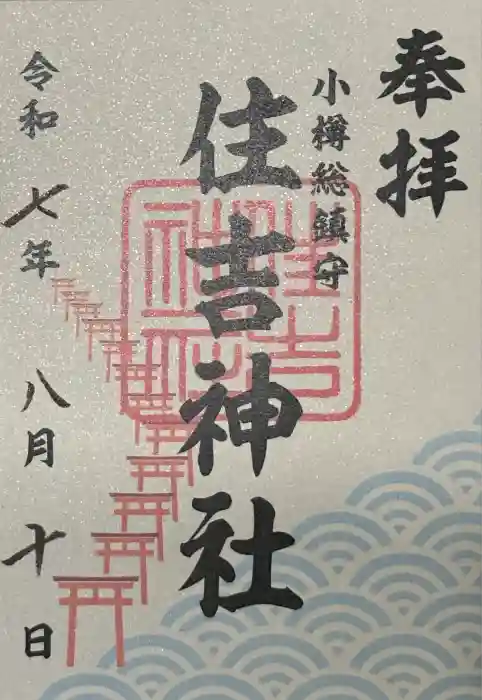 奉拝
小樽総鎮守
住吉神社
令和七年八月十日
住吉神社